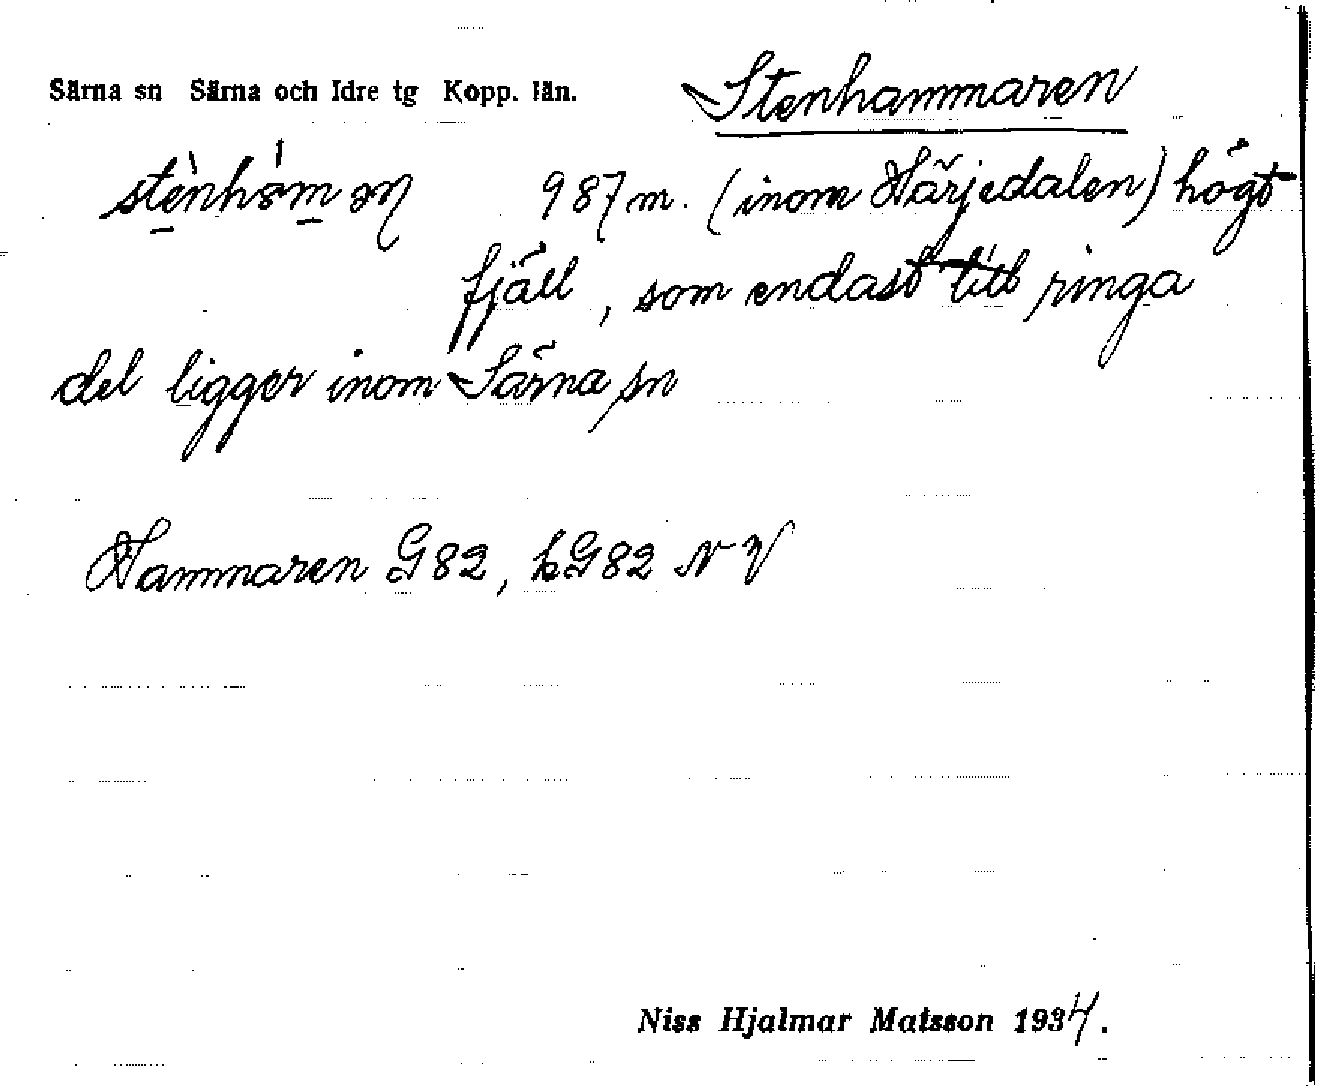 Särna sn Särna och Idre tg Kopp. län. Stenhammaren
987 m. (inom Härjedalen) högt
fjäll, som endast till ringa
del ligger inom Särna sn
Hammaren G82, kG82 NV
Niss Hjalmar Matsson 1934.